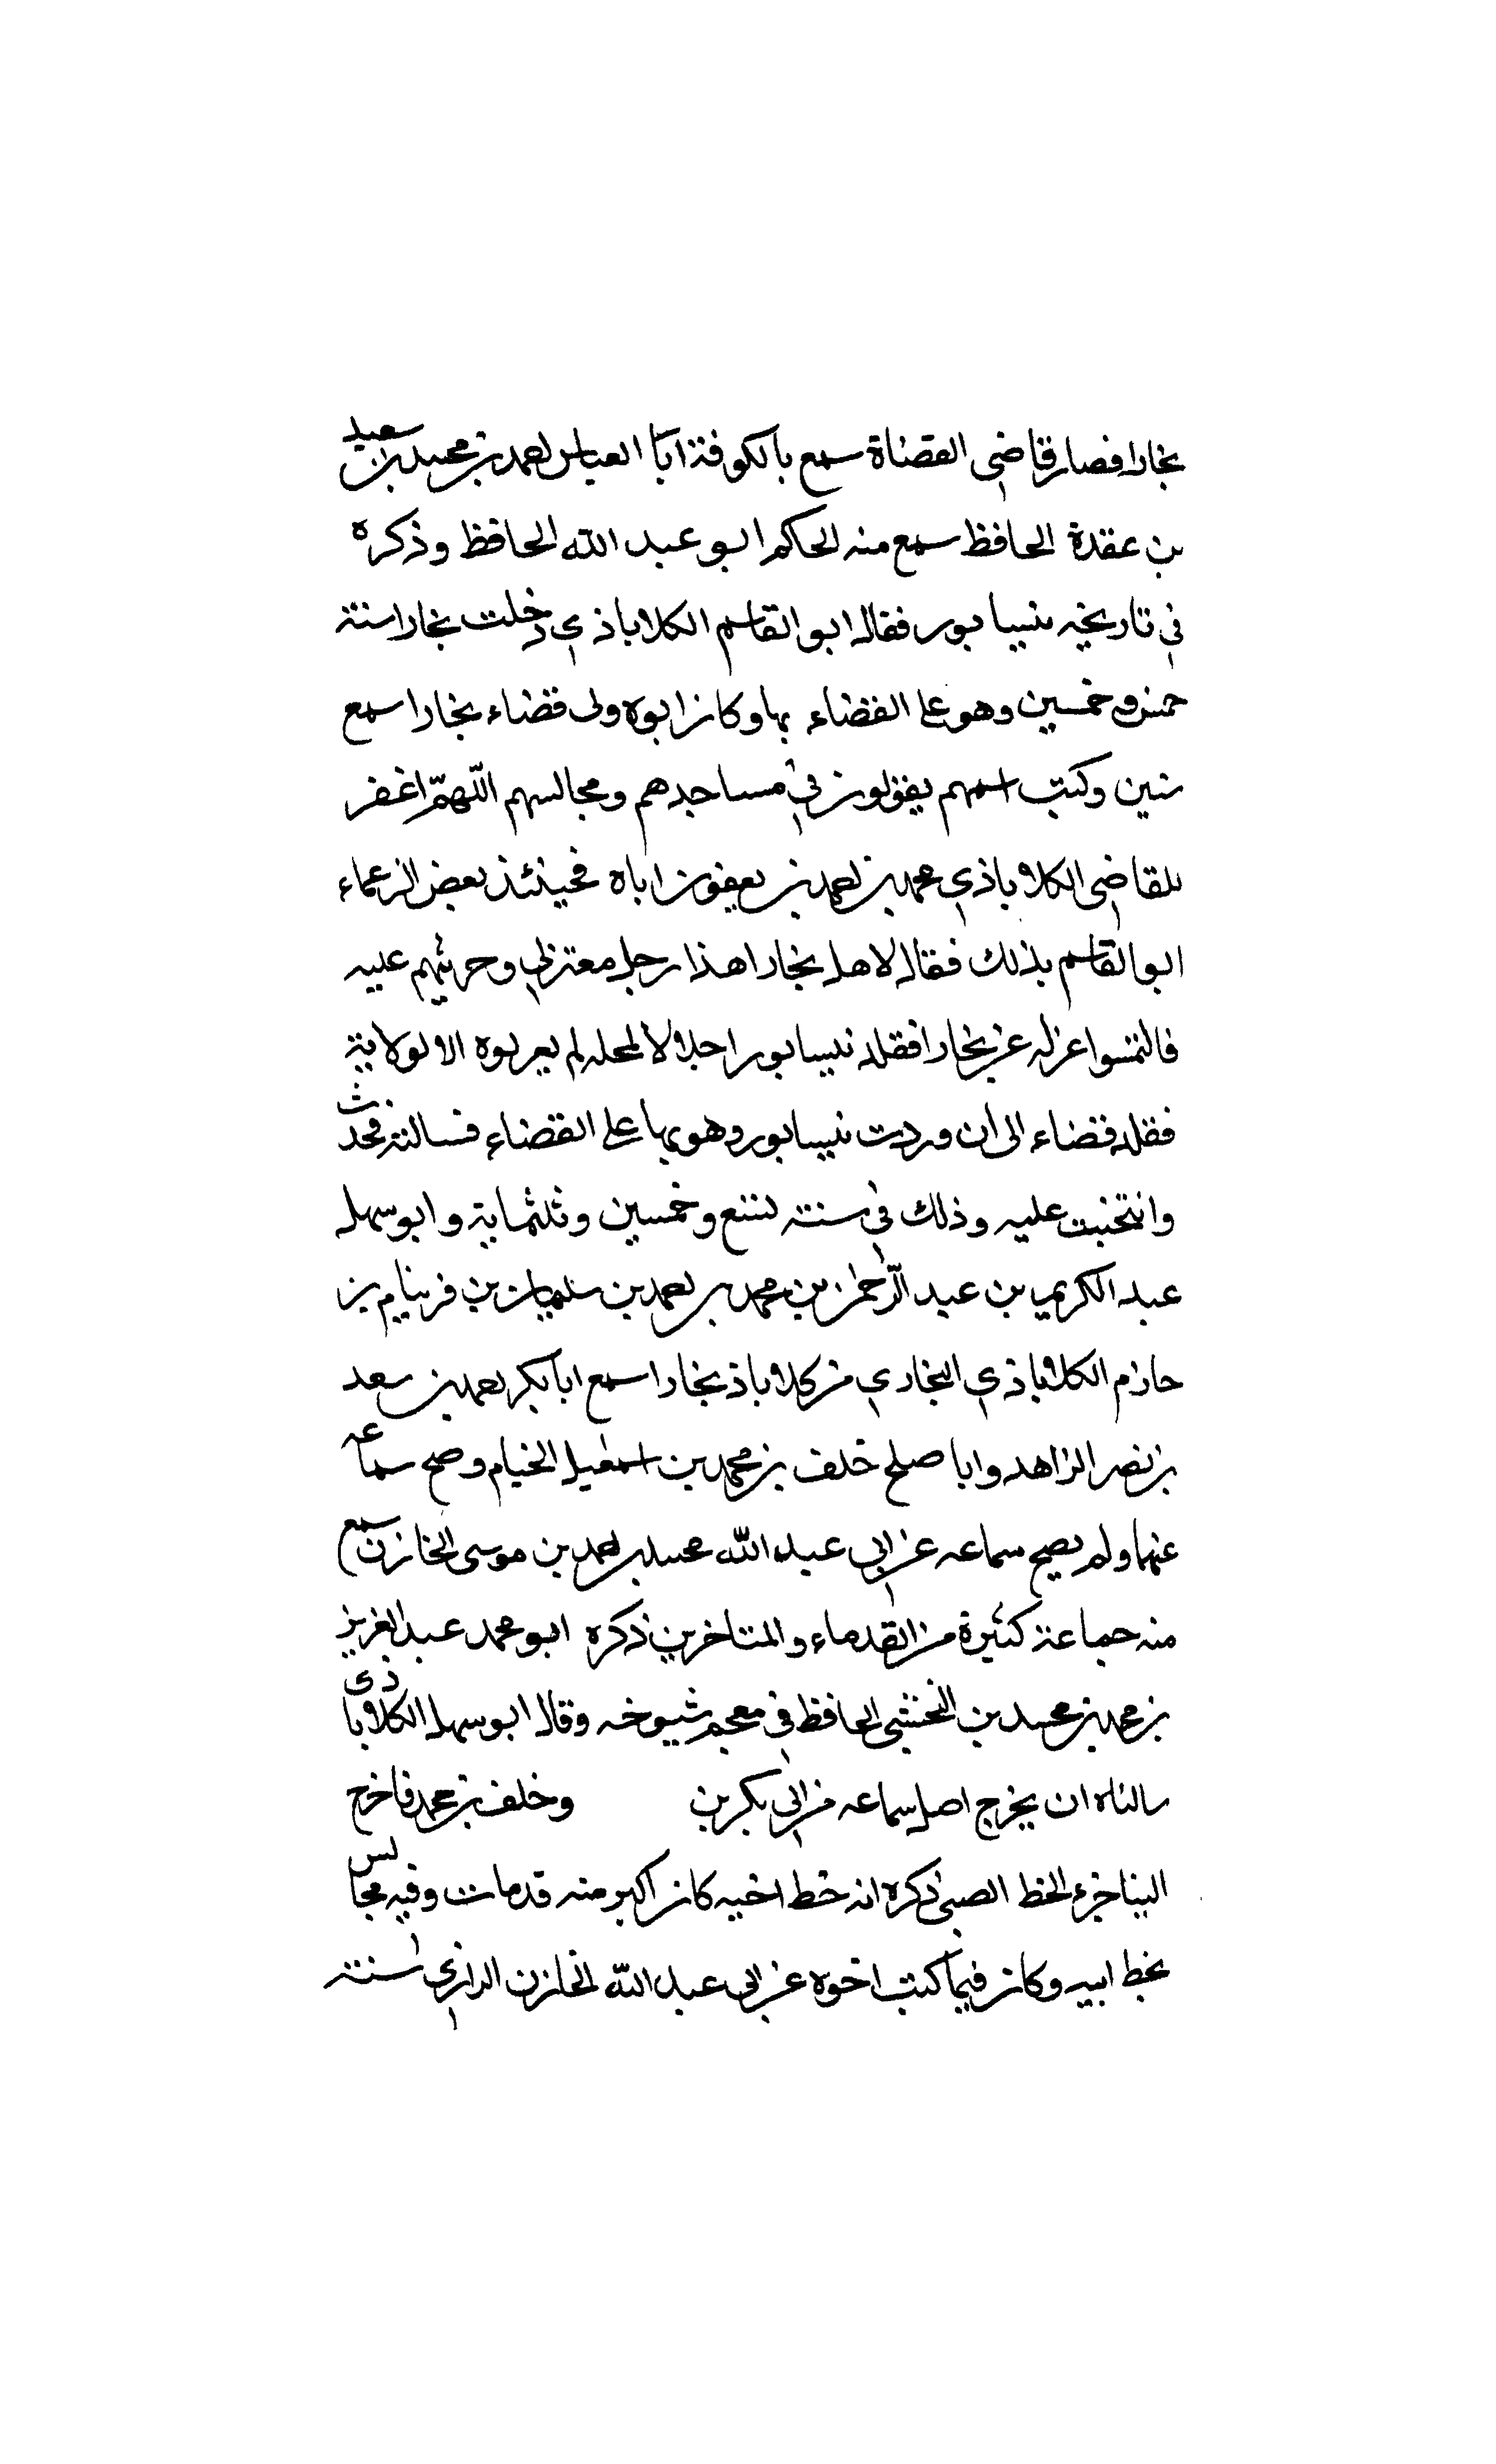 بخارا فصار قاضى القضاة سمع بالكوفة ابا العباس احمد بن محمد بن سعيد
بن عقدة الحافظ سمع منه الحاكم ابو عبد الله الحافظ وذكره
فى تاريخه نيسابور فقال ابو القاسم الكلاباذي دخلت بخارا سنة
خمس وخمسين وهو على القضاء بها وكان ابوه ولى قضاء بخارا سمع
سنين وكتب اسمهم يقولون فى مساجدهم ومجالسهم اللّهمّ اغفر
للقاضى الكلاباذي محمد بن احمد بن يعفون اباه فحينئذ بعض الزعماء
ابو القاسم بذلك فقال لاهل بخارا هذا رجل معتزلي وحرثهم عليه
فالتمسوا عزله عن بخارا فقلد نيسابور اجلالا لمحله لم يعربوه الا لولاية
فقلد قضاء الى ان وردت نيسابور وهو بها على القضاء فسالته فحدث
وانتخبت عليه وذلك فى سنة تسع وخمسين وثلثماية وابو سهل
عبد الكريم بن عبد الرّحمن بن محمد بن احمد بن سليمان بن فرينام بن
حازم الكلاباذي البخاري من كلاباذ بخارا سمع ابا بكر احمد بن سعد
بن نصر الزاهد وابا صلح خلف بن محمد بن اسمعيل الخيام وصح سماعه
عنهما ولم يصح سماعه عن ابى عبد الله محمد بن احمد بن موسى الخازن سمع
منه جماعة كثيرة من القدماء والمتاخرين ذكره ابو محمد عبد العزيز
بن محمد بن محمد بن النخشبى الحافظ فى معجم شيوخه وقال ابو سهل الكلاباذى
سالناه ان يخرج اصل سماعه من ابى بكر بن وخلف بن محمد فاخرج
الينا جزء الخط الصبى ذكره انه خط اخيه كان اكبر منه قد مات وفيه مجالس
بخط ابيه وكان فيما كتب اخوه عن ابى عبد الله الخازن الرازي سنة